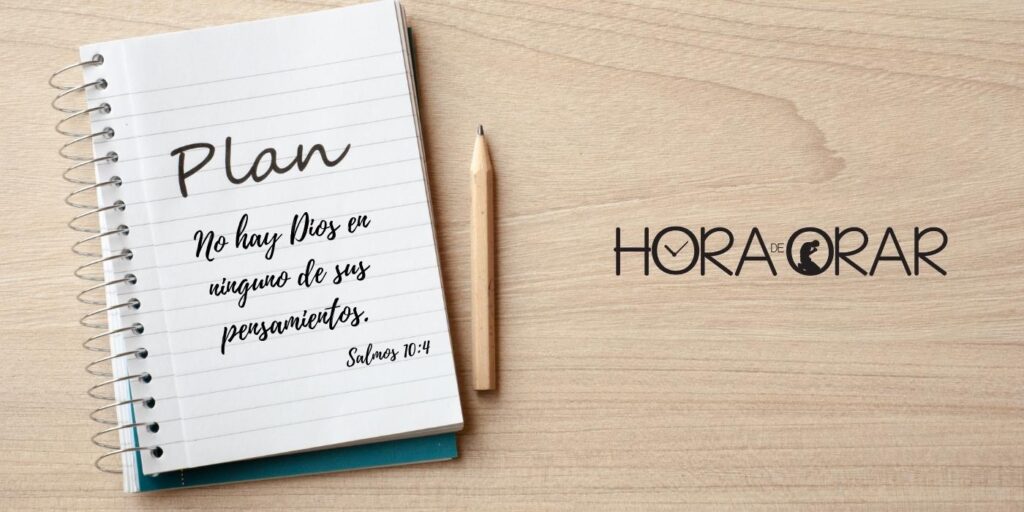 Plan
No hay Dios en
ninguno de sus
pensamientos.
Salmos 10:4
HORA DE ORAR